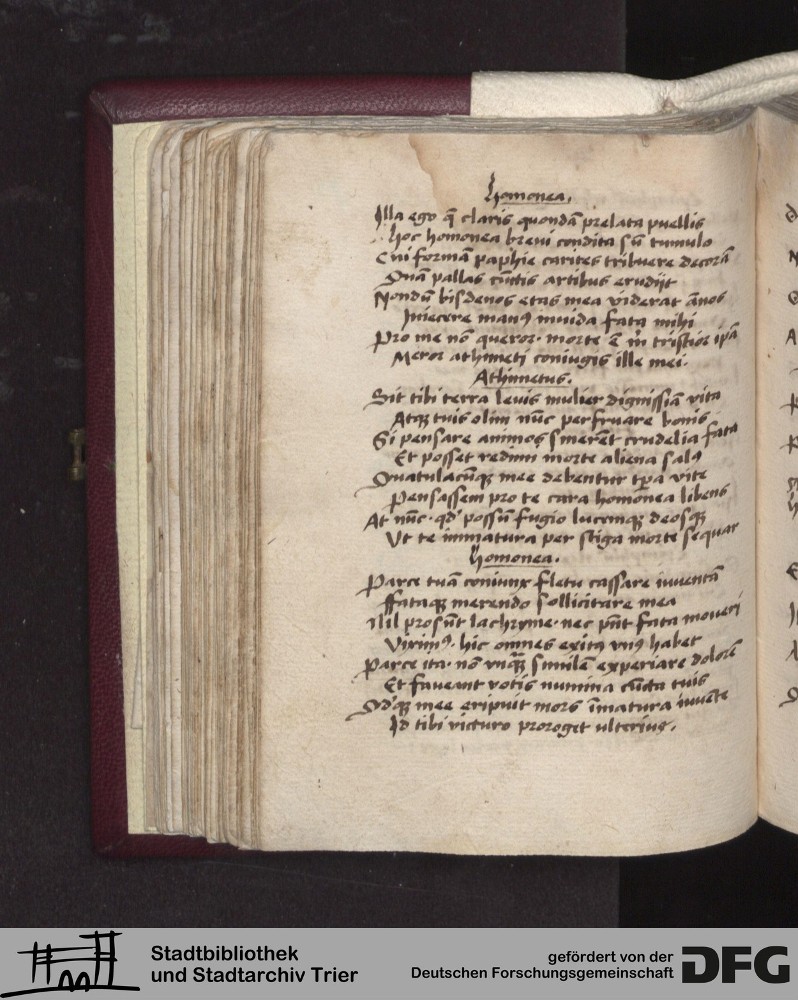 Homonea.
Illa ego q̄ claris quondā prelata puellis
hoc homonea breui condita sū tumulo
Cui formā paphie carites tribuere decorā
Quā pallas cūctis artibus erudijt
Nondū bisdenos etas mea viderat ānos
Iniecere manꝰ inuida fata mihi
Pro me nō queror· morte ē m̄ tristior ip̄ā
Meror athimeti coniugis ille mei·
Athimetus.
Sit tibi terra leuis mulier dignissiā vita
Atqꝫ tuis olim nūc perfruare bonis
Si pensare animos sinerēt crudelia fata
Et posset redimi morte aliena salꝰ
Quatulacūqꝫ mee debentur tp̄a vite
Pensassem pro te cara homonea libens
At nūc· qd' possū fugio lucemqꝫ deosqꝫ
Vt te immatura per stiga morte sequar
Homonea.
Parce tuā coniunx fletu cassare iuuentā
ffataqꝫ merendo sollicitare mea
Nil prosūt lachryme· nec pn̄t fata moueri
Viximꝰ· hic omnes exitꝰ vnꝰ habet
Parce ita· nō vnqꝫ̄ similē experiare dolorē
Et faueant votis numina cūcta tuis
Qd'qꝫ mee eripuit mors īmatura iuuēte
Id tibi victuro proroget vlterius.
Stadtbibliothek
und Stadtarchiv Trier
gefördert von der
Deutschen Forschungsgemeinschaft
DFG